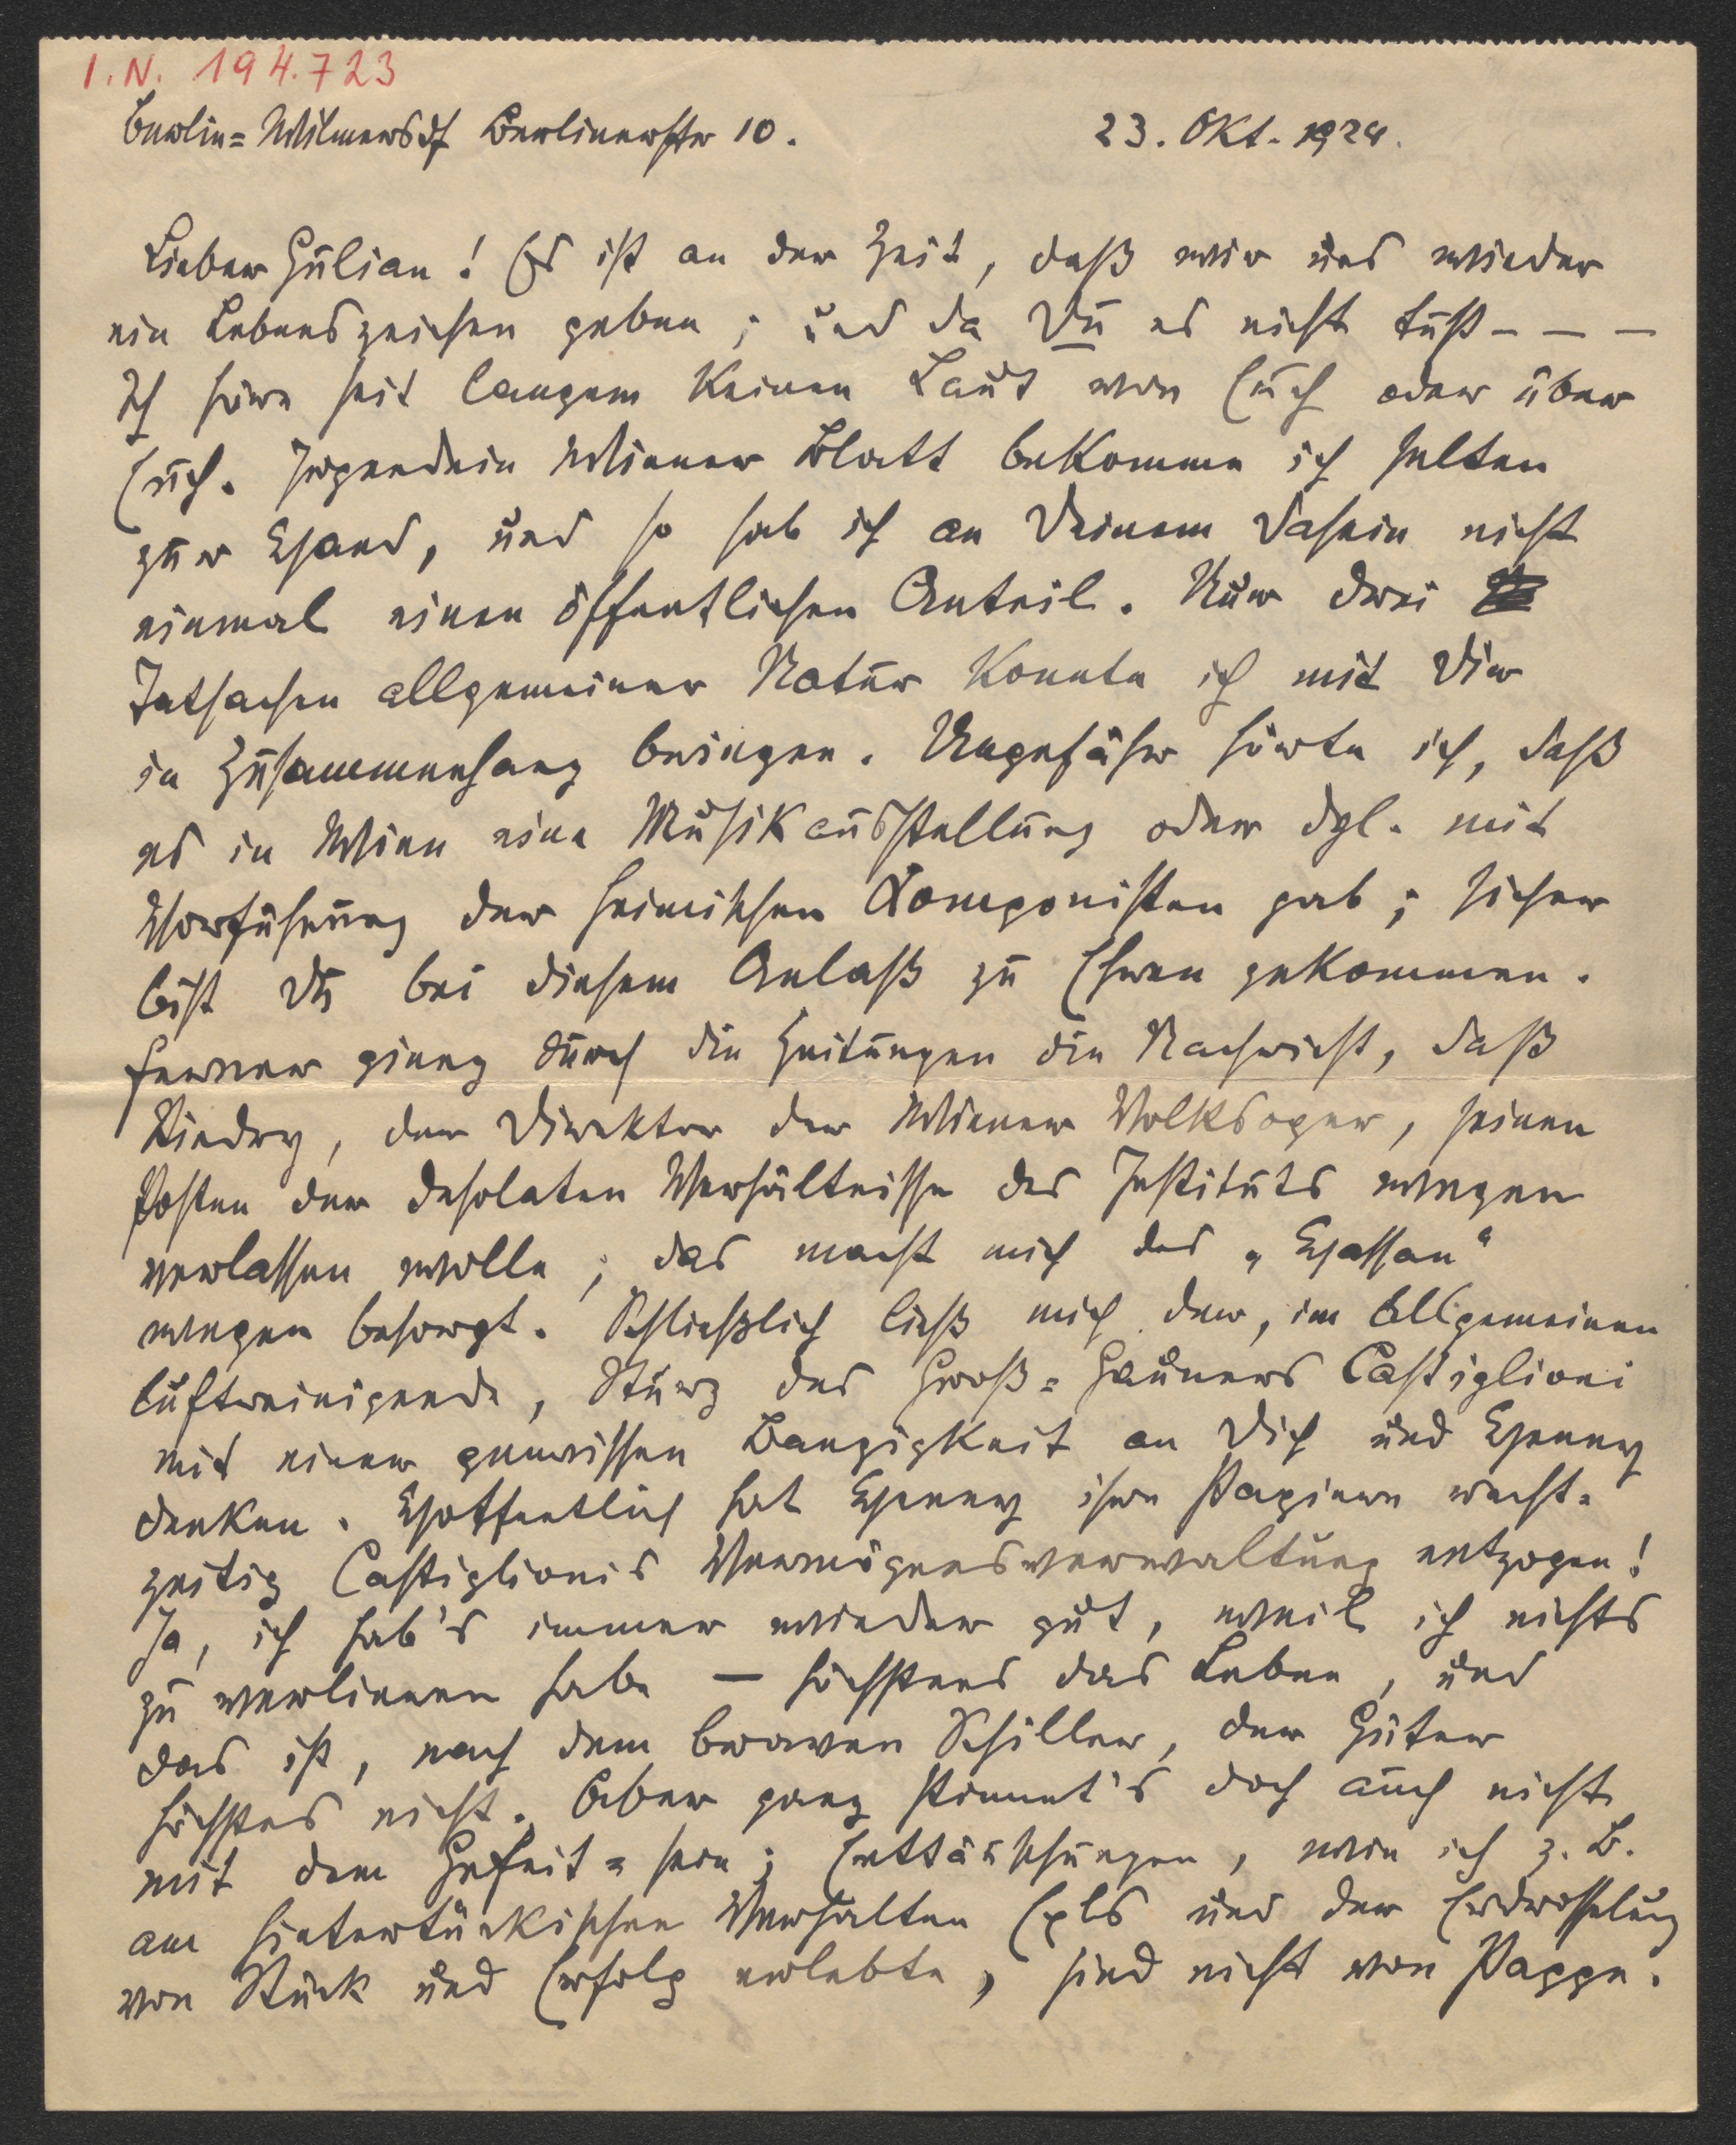 I.N. 194.723
Berlin=Wilmersdf Berlinerstr 10. 23. Okt. 1924.
Lieber Julian! Es ist an der Zeit, daß wir uns wieder
ein Lebenszeichen geben; und da Du es nicht tust – – –
Ich höre seit langem keinen Laut von Euch oder über
Euch. Irgendein Wiener Blatt bekomme ich selten
zur Hand, und so hab ich an Deinem Dasein nicht
einmal einen öffentlichen Anteil. Nur drei
Tatsachen allgemeiner Natur konnte ich mit Dir
in Zusammenhang bringen. Ungefähr hörte ich, daß
es in Wien eine Musikausstellung oder dgl. mit
Vorführung der heimischen Componisten gab; sicher
bist Du bei diesem Anlaß zu Ehren gekommen.
Ferner ging durch die Zeitungen die Nachricht, daß
Stiedry, der Direktor der Wiener Volksoper, seinen
Posten der desolaten Verhältnisse des Instituts wegen
verlassen wolle; das macht mich des „Hassan“
wegen besorgt. Schließlich ließ mich der, im allgemeinen
luftreinigende, Sturz des Groß=Gauners Castiglioni
mit einer gewissen Bangigkeit an Dich und Henny
denken. Hoffentlich hat Henny ihre Papiere recht=
zeitig Castiglionis Vermögensverwaltung entzogen!
Ja, ich hab's immer wieder gut, weil ich nichts
zu verlieren habe – höchstens das Leben, und
das ist, nach dem braven Schiller, der Güter
höchstes nicht. Aber ganz stimmt's doch auch nicht
mit dem Gefeit=sein; Enttäuschungen, wie ich z. B.
am hintertückischen Verhalten Exls und der Erdrosselung
von Stück und Erfolg erlebte, sind nicht von Pappe.